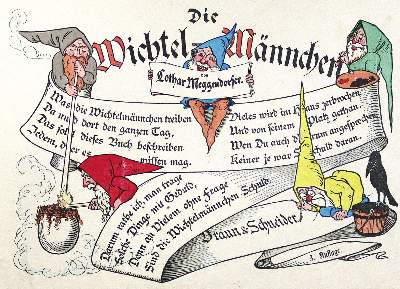 Die
Wichtel-Männchen
von
Lothar Meggendorfer.
Was die Wichtelmännchen treiben
Da und dort den ganzen Tag,
Das soll dieses Buch beschreiben
Jedem, der es wissen mag.
Vieles wird im Haus zerbrochen
Und von seinem Platz gethan.
Wen Du auch darum angesprochen
Keiner je war Schuld daran.
Darum rathe ich, man trage
Solche Dinge mit Geduld,
Denn an Vielem ohne Frage
Sind die Wichtelmännchen Schuld.
Braun & Schneider.
Auflage